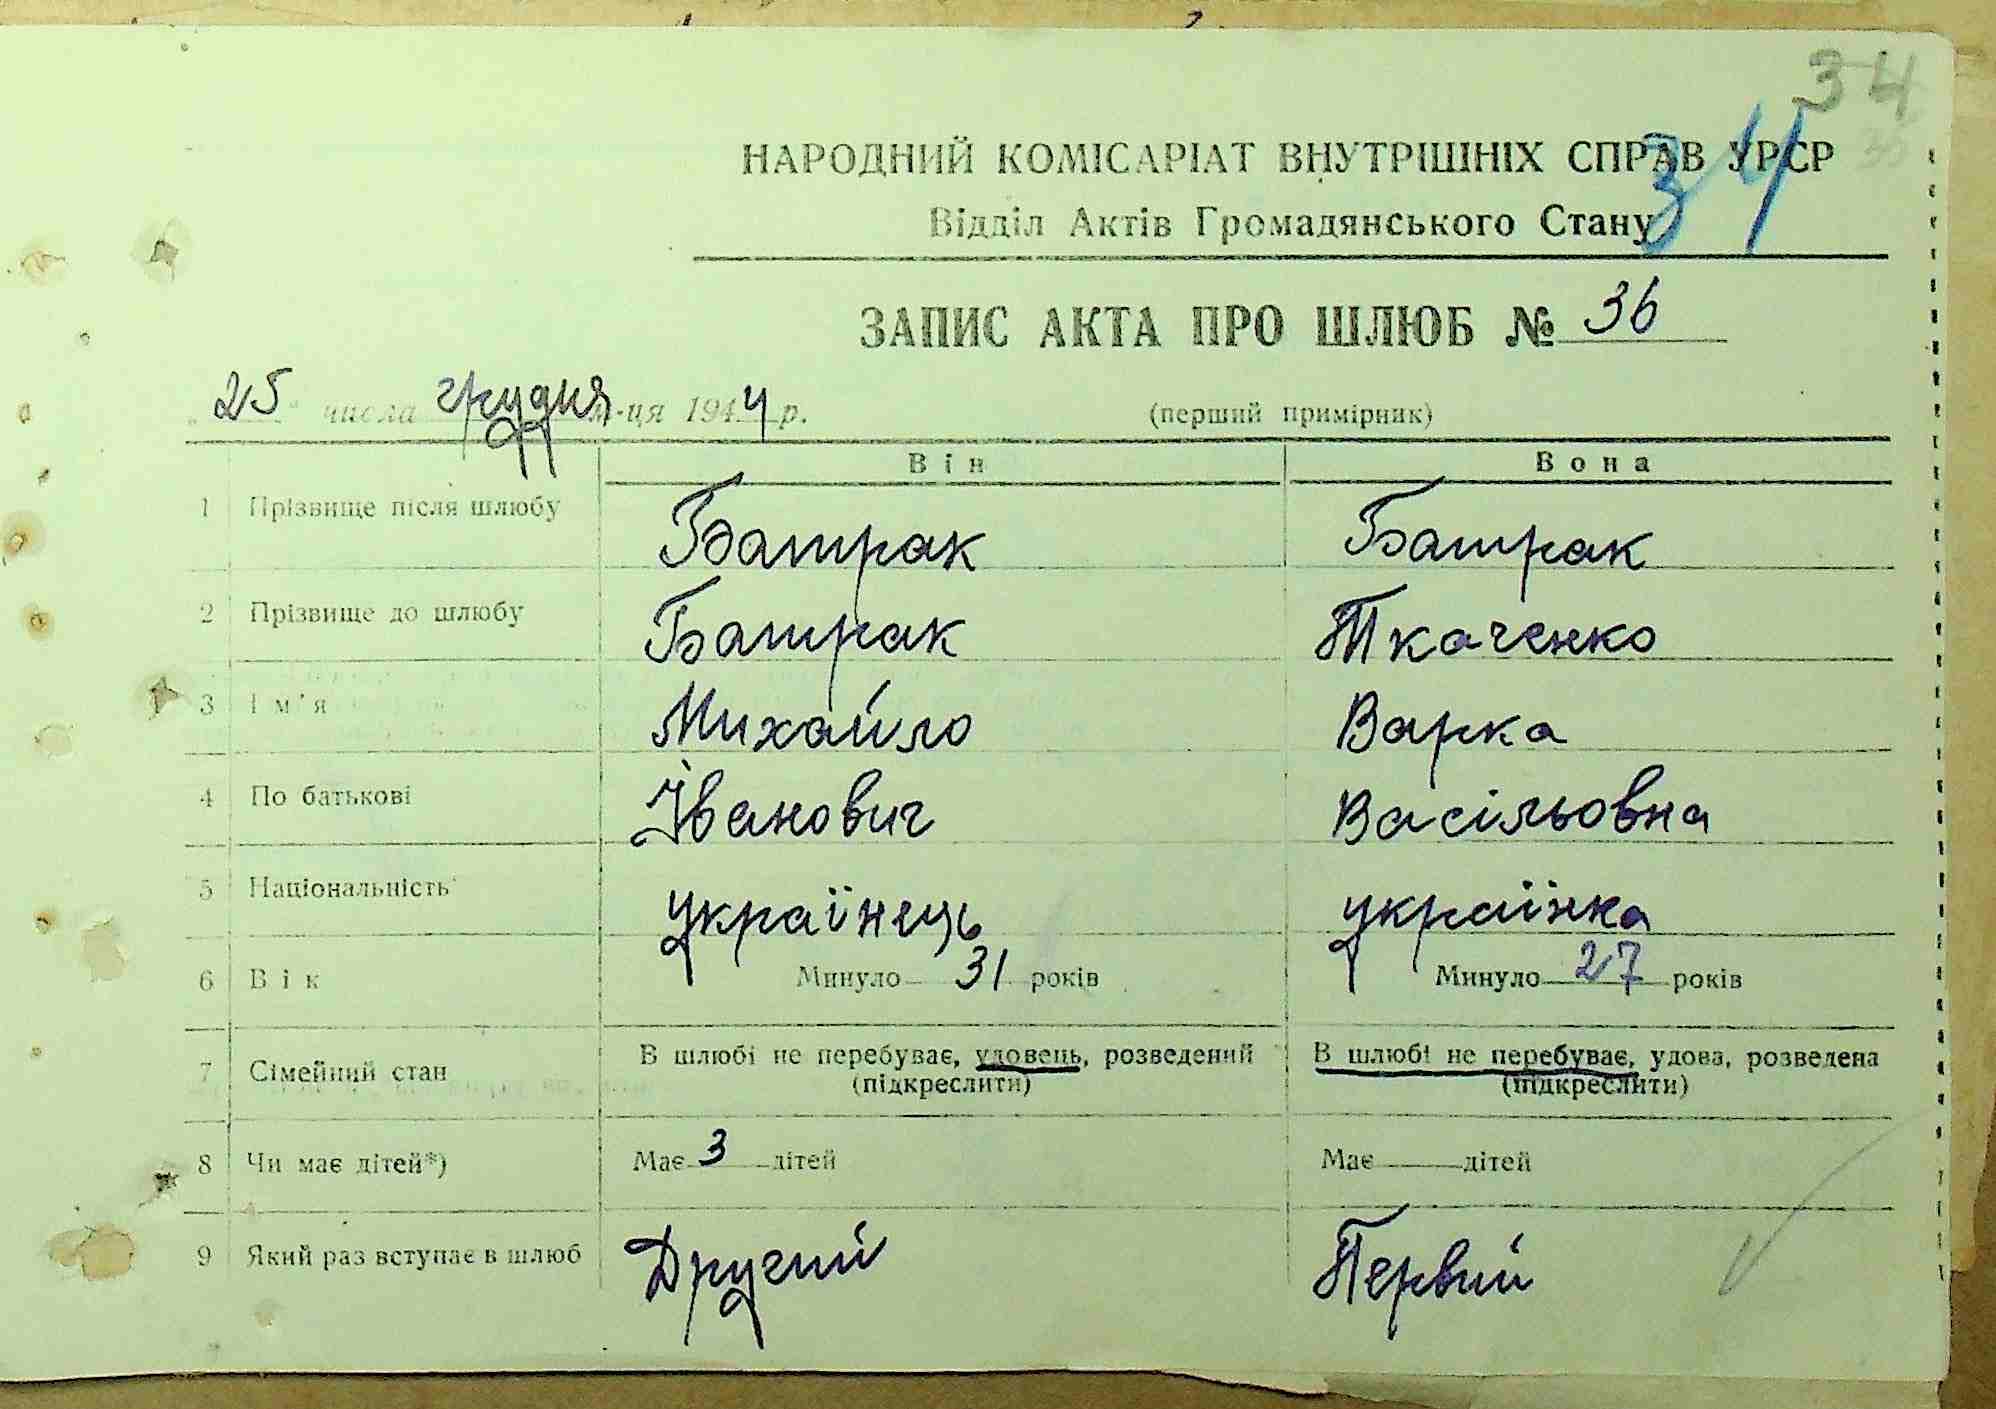 34
34
НАРОДНИЙ КОМІСАРІАТ ВНУТРІШНІХ СПРАВ УРСР
Відділ Актів Громадянського Стану
ЗАПИС АКТА ПРО ШЛЮБ № 36
„25" числа грудня м-ця 1944 р. (перший примірник)
Він Вона
1 Прізвище після шлюбу Батрак Батрак
2 Прізвище до шлюбу Батрак Ткаченко
3 Ім'я Михайло Варка
4 По батькові Іванович Васільовна
5 Національність українець українка
6 Вік Минуло 31 років Минуло 27 років
7 Сімейний стан В шлюбі не перебуває, удовець, розведений В шлюбі не перебуває, удова, розведена
(підкреслити) (підкреслити)
8 Чи має дітей*) Має 3 дітей Має — дітей
9 Який раз вступає в шлюб Другий Первий